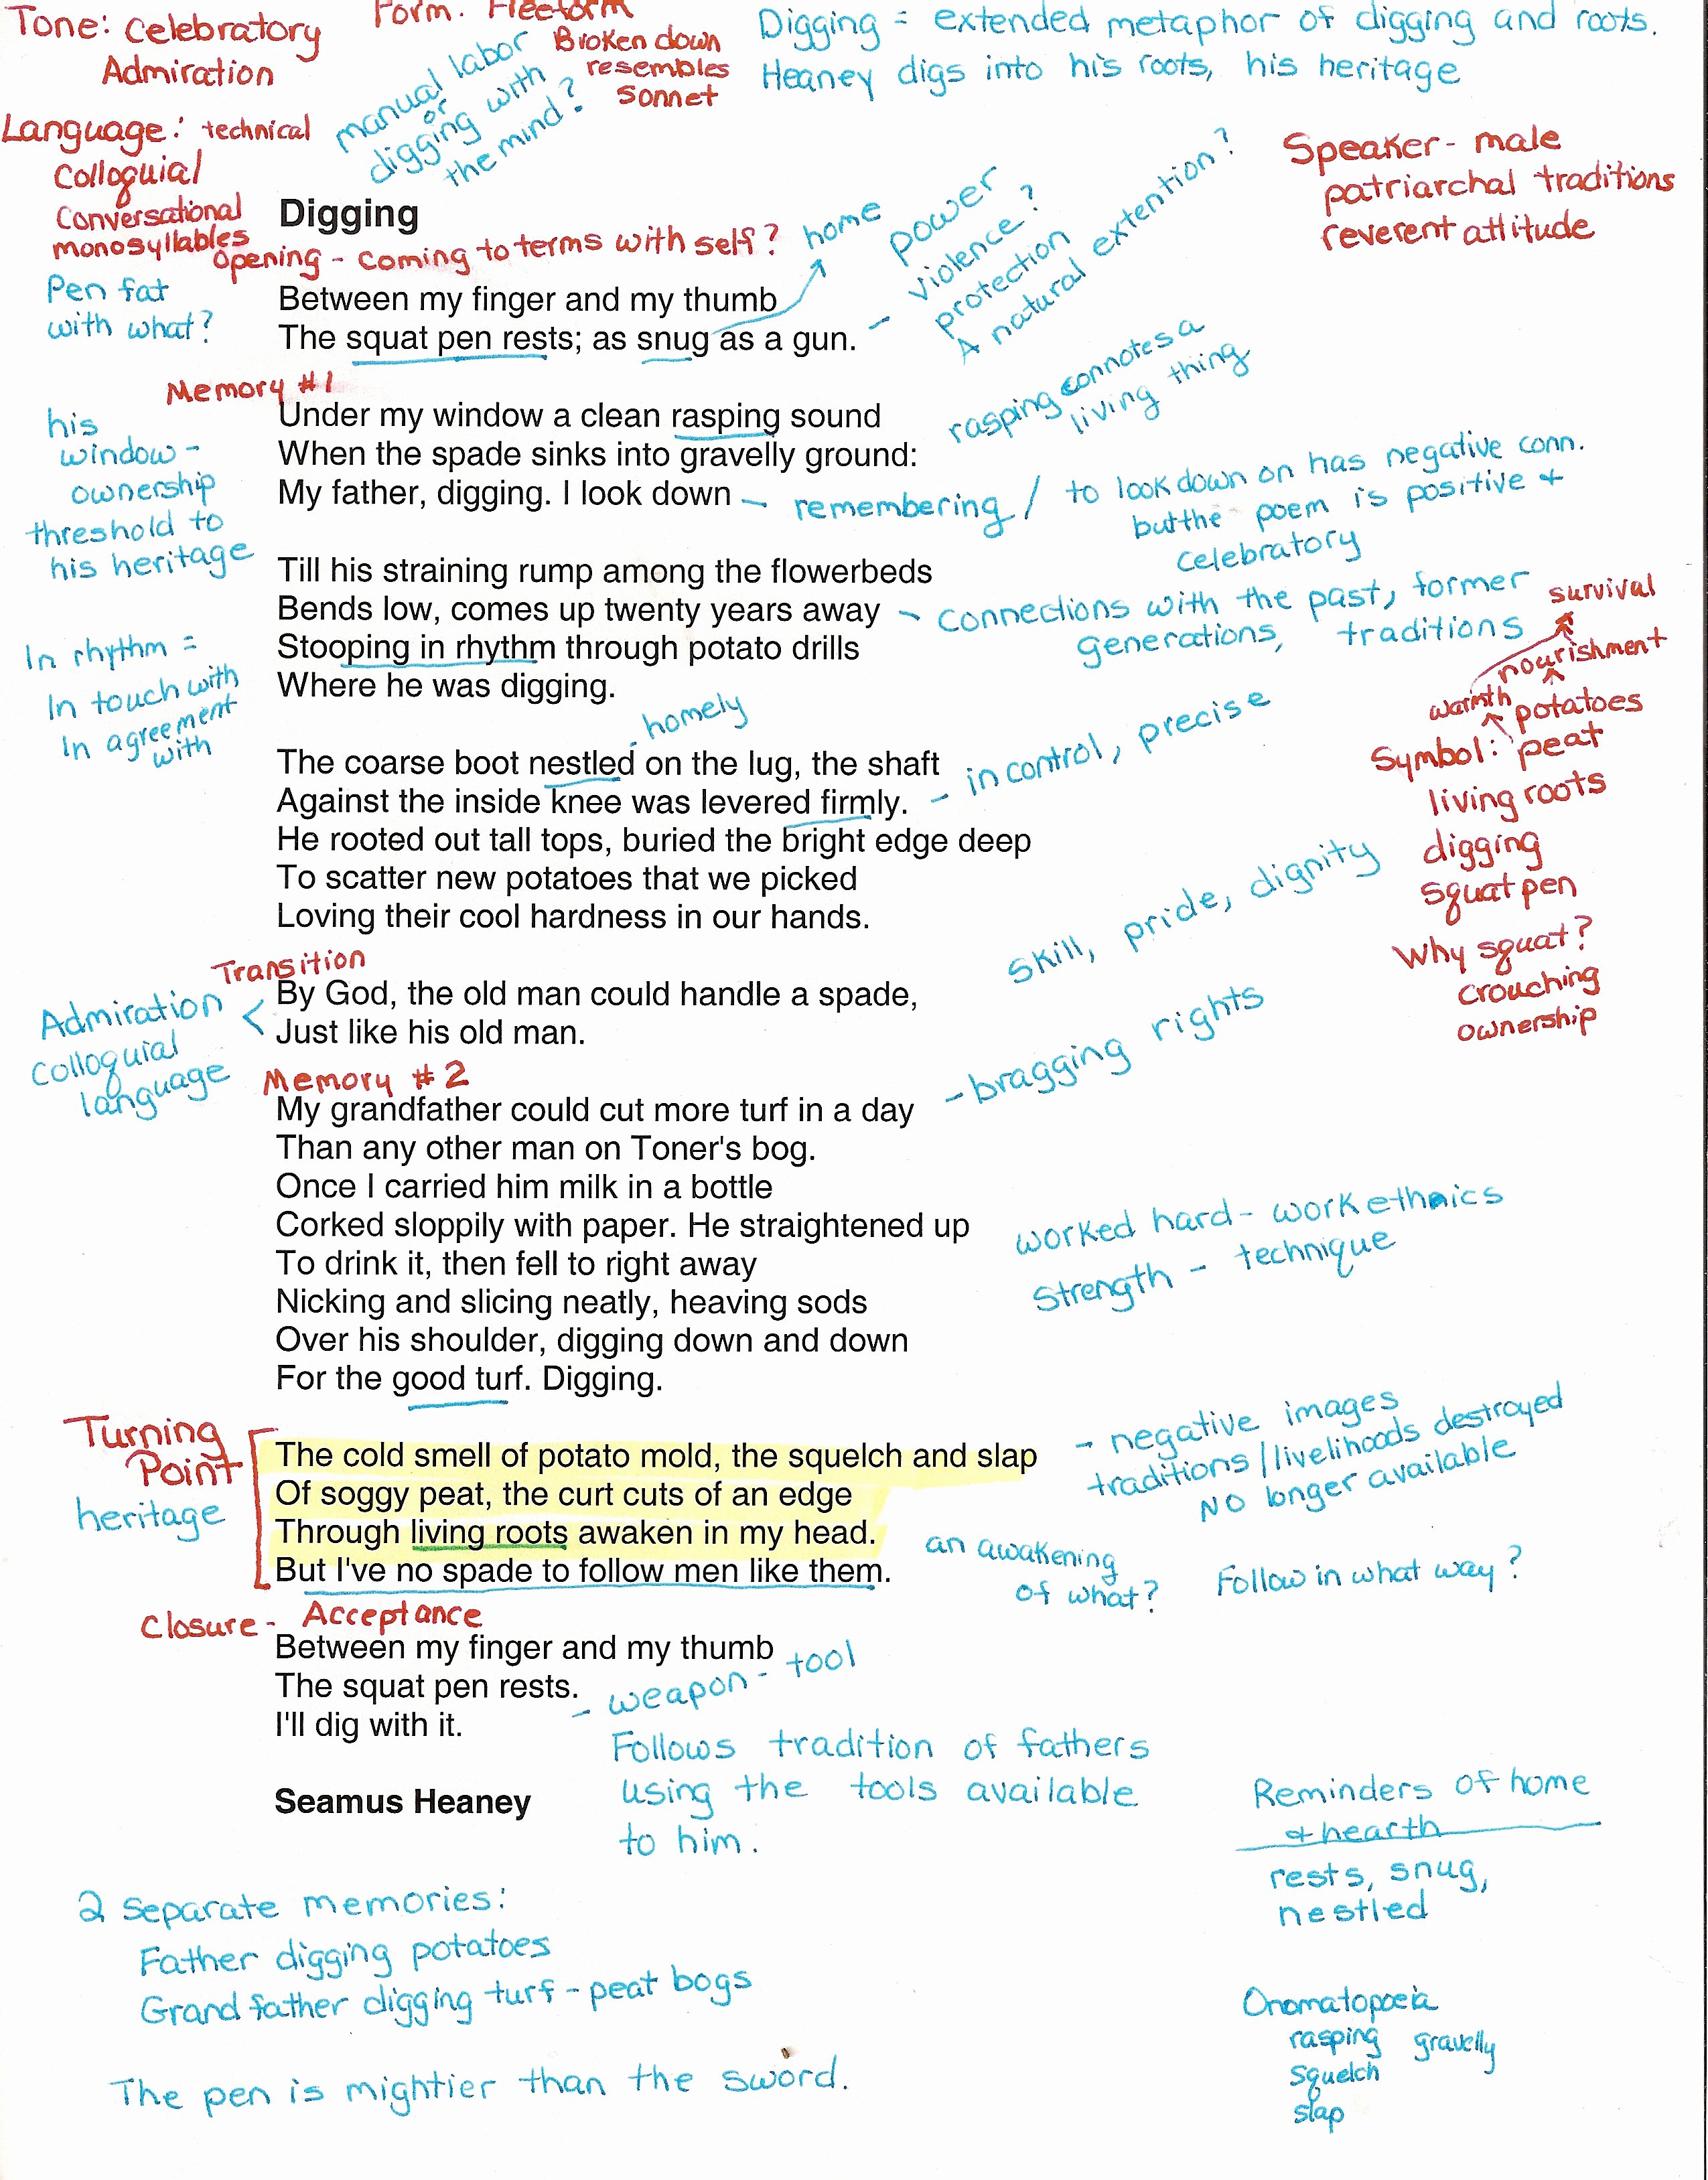 Tone: Celebratory
Admiration
Form: Freeform
Broken down
resembles
Sonnet
Digging = extended metaphor of digging and roots.
Heaney digs into his roots, his heritage
manual labor
or
digging with
the mind?
Language: technical
Colloquial
Conversational
monosyllables
Speaker - male
patriarchal traditions
reverent attitude
Digging
Opening - coming to terms with self?
home
power
violence?
protection
A natural extention?
Pen fat
with what?
Between my finger and my thumb
The squat pen rests; as snug as a gun. -
Memory #1
his
window -
ownership
threshold to
his heritage
Under my window a clean rasping sound
When the spade sinks into gravelly ground:
My father, digging. I look down - remembering /
rasping connotes a
living thing
to look down on has negative conn.
but the poem is positive +
celebratory
Till his straining rump among the flowerbeds
Bends low, comes up twenty years away - connections with the past, former
generations, traditions
Stooping in rhythm through potato drills
Where he was digging.
In rhythm =
In touch with
In agreement
with
survival
nourishment
warmth potatoes
Symbol: peat
living roots
digging
squat pen
Why squat?
crouching
ownership
homely
The coarse boot nestled on the lug, the shaft
Against the inside knee was levered firmly. - in control, precise
He rooted out tall tops, buried the bright edge deep
To scatter new potatoes that we picked
Loving their cool hardness in our hands.
skill, pride, dignity
Transition
Admiration <
Colloquial
language
By God, the old man could handle a spade,
Just like his old man.
Memory #2
My grandfather could cut more turf in a day
- bragging rights
Than any other man on Toner's bog.
Once I carried him milk in a bottle
Corked sloppily with paper. He straightened up
To drink it, then fell to right away
Nicking and slicing neatly, heaving sods
Over his shoulder, digging down and down
For the good turf. Digging.
worked hard - work ethnics
Strength - technique
Turning
Point
heritage
The cold smell of potato mold, the squelch and slap
Of soggy peat, the curt cuts of an edge
Through living roots awaken in my head.
But I've no spade to follow men like them.
- negative images
traditions/livelihoods destroyed
No longer available
an awakening
of what?
Follow in what way?
Closure - Acceptance
Between my finger and my thumb
The squat pen rests.
I'll dig with it.
- weapon - tool
Follows tradition of fathers
using the tools available
to him.
Seamus Heaney
Reminders of home
+ hearth
rests, snug,
nestled
2 Separate memories:
Father digging potatoes
Grandfather digging turf - peat bogs
Onomatopoeia
rasping gravelly
squelch
slap
The pen is mightier than the sword.